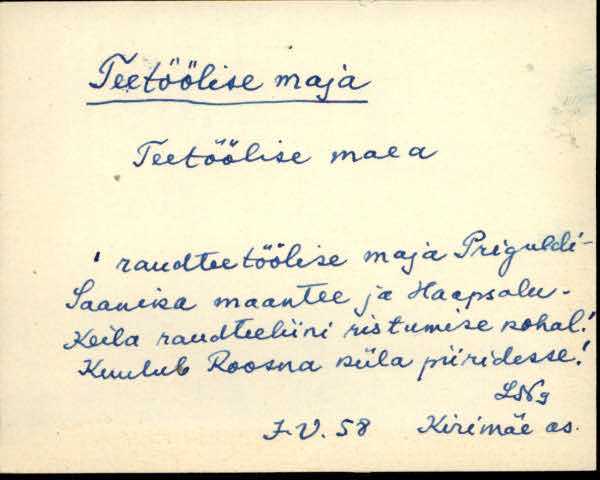 Teetöölise maja
Teetöölise maea
' raudteetöölise maja Priguldi-
Saanika maantee ja Haapsalu-
Keila raudteeliini ristumise kohal.'
Kuulub Roosna küla piiridesse.'
J. V. 58 Kirimäe as.